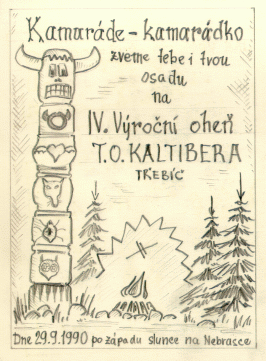 Kamaráde - kamarádko
zveme tebe i tvou
osadu
na
IV. Výroční oheň
T.O. KALTIBERA
TŘEBÍČ
Dne 29.9.1990 po západu slunce na Nebrasce